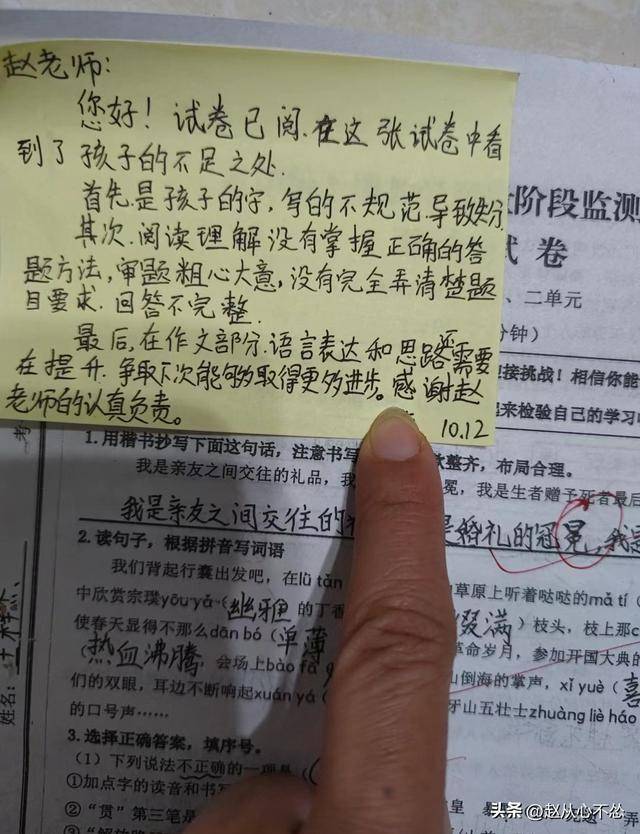 赵老师：
您好！试卷已阅.在这张试卷中看
到了孩子的不足之处.
首先是孩子的字，写的不规范.导致失分.
其次.阅读理解没有掌握正确的答
题方法，审题粗心大意，没有完全弄清楚题
目要求.回答不完整.
最后，在作文部分.语言表达和思路还需要
在提升.争取下次能够取得更多进步。感谢赵
老师的认真负责。
10.12
阶段监测
试卷
、二单元
分钟）
迎接挑战！相信你能
起来检验自己的学习
1.用楷书抄写下面这句话，注意书写 整齐，布局合理。
我是亲友之间交往的礼品，我 冕，我是生者赠予死者最后
我是亲友之间交往的 是婚礼的冠冕，我是
2.读句子，根据拼音写词语
我们背起行囊出发吧，在lǜ tǎn 草原上听着哒哒的mǎ tí（
中欣赏宗璞yōu yǎ（幽雅）的丁香 缀满）枝头，枝上那
使春天显得不那么dān bó（单薄 革命岁月，参加开国大典的
热血沸腾，会场上bào fā 山倒海的掌声，xǐ yuè（喜
们的双眼，耳边不断响起xuán yá（ 牙山五壮士zhuàng liè háo
的口号声……
3.选择正确答案，填序号。
（1）下列说法不正确的一项是（
①加点字的读音和书写
②“贯”第三笔是 皇 暴
姓名：
头条 @赵从心不怂